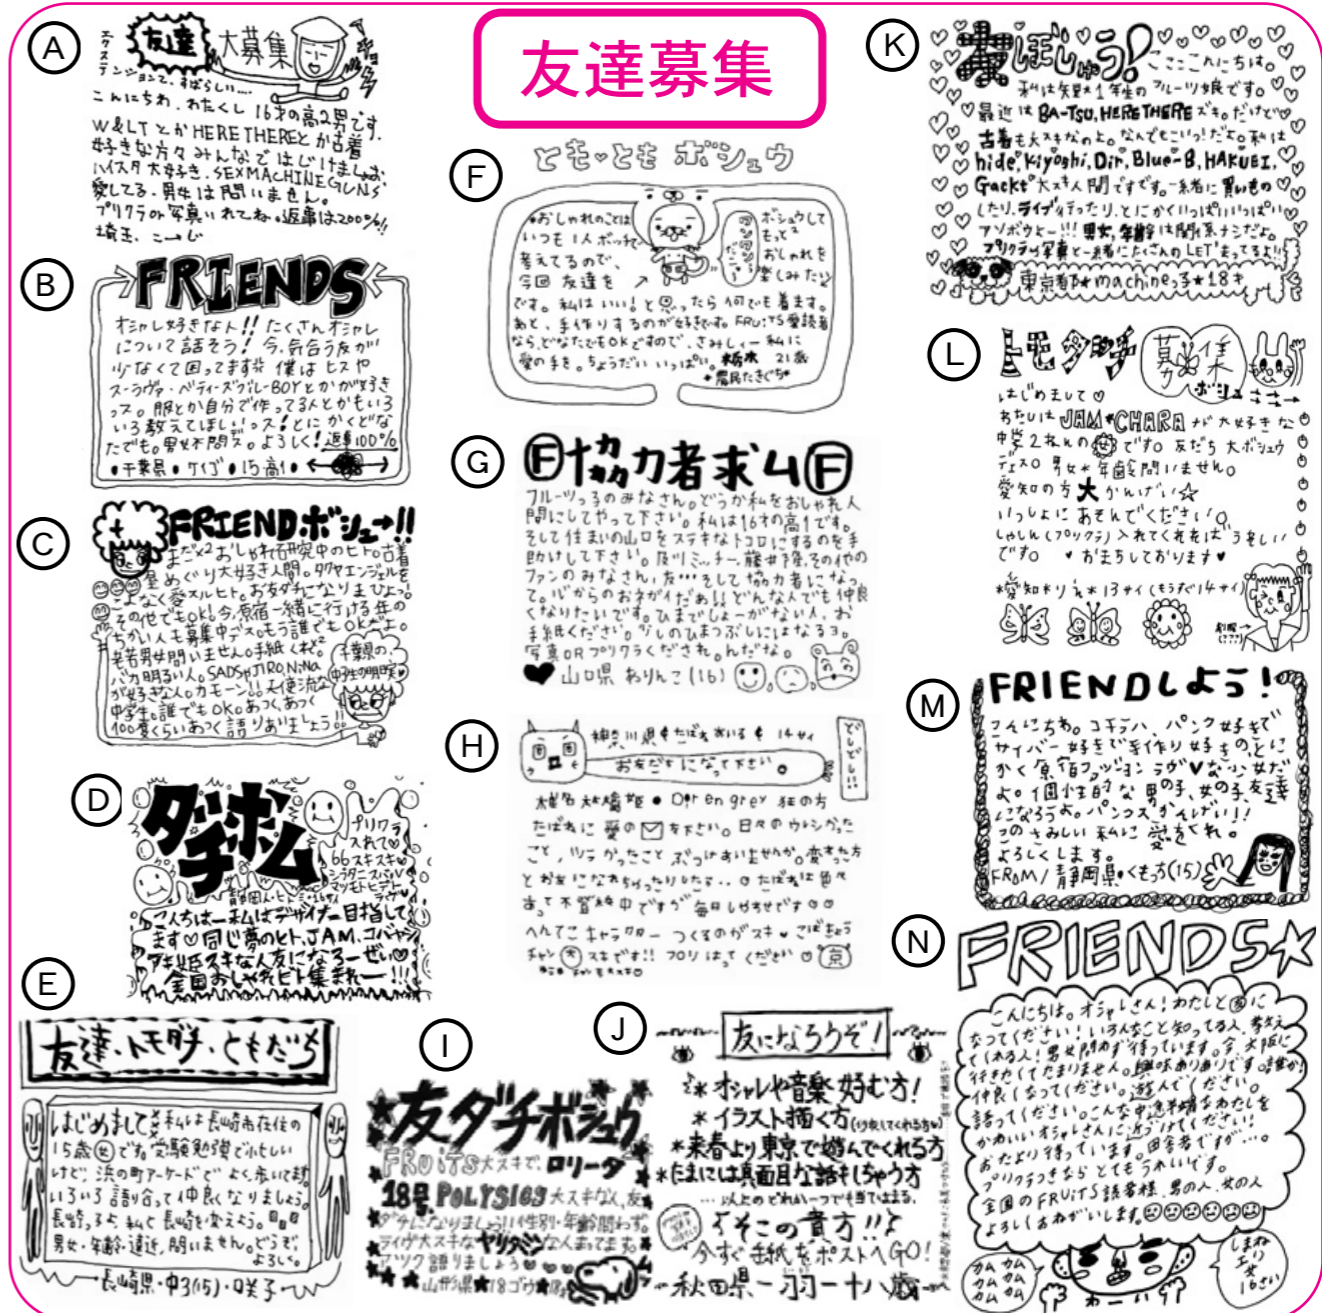 友達募集
A
友達 大募集
エクステンションで、すばらしい....
こんにちわ、わたくし 16才の高2男です。
W&LTとかHERE THEREとか古着
好きな方々みんなではじけましょお
ハイスタ大好き、SEX MACHINEGUNS
愛してる。男女は問いません。
プリクラか写真いれてね。返事は200%!!
埼玉、こーじ
B
FRIENDS
オシャレ好きな人!! たくさんオシャレ
について話そう! 今、気合う友が
少なくて困ってます 僕はヒスや
スーラヴァ・ベティーズブルーBOYとかが好き
っス。服とか自分で作ってる人とかもいろ
いろ教えてほしいっス!とにかくどな
たでも。男女不問デス。よろしく!返事100%
●千葉県●ケイゴ●15高1●
C
FRIENDボシュー!!
まだ×2おしゃれ研究中のヒト。古着
屋めぐり大好き人間。タクヤエンジェルを
こよなく愛スルヒト。お友ダチになりまひょっ。
その他でもOK!今、原宿一緒に行ける年の
ちかい人も募集中デス。もう誰でもOKだよ。
老若男女問いません。手紙くれ×2
バカ明るい人。SADSやJIRO、NiNa
が好きな人。カモーン!!天使流な
中学生。誰でもOK。あつく、あつく
100度くらいあつく語りあいましょう!!
千葉県の、
中3生の明実
D
ダチボム
プリクラ
入れて
66スキスキ
シラタニスバル
マツモトヒデト
ラヴ
静岡人・ヒトミ・16サイ
こんちはー私はデザイナー目指して
ます♡同じ夢のヒト、JAM、コバヤシ
アキ姫スキな人友になろーぜい♡
全国おしゃれピト集まれー!!!
E
友達・トモダチ・ともだち
はじめまして 私は長崎市在住の
15歳(女)です。受験勉強で忙しい
けど、浜の町アーケードでよく歩いてます。
いろいろ語り合って仲良くなりましょう。
長崎っ子よ、私と長崎を変えよう。
男女・年齢・遠近、問いません。どうぞ、
よろしく。
長崎県・中3(15)・咲子
F
とも♡とも ボシュウ
●おしゃれのことは
いつも1人ボッチで
考えてるので、
今回 友達を
ボシュウして
もっと2
おしゃれを
楽しみたい
です。私はいい!と思ったら何でも着ます。
あと、手作りするのが好きです。FRUiTS愛読者
なら、どなたでもOKですので、さみしぃー私に
愛の手を。ちょうだいいっぱい。栃木 21歳
*農民たきぐち*
G
Ⓕ協力者求ムⒻ
フルーツっ子のみなさん。どうか私をおしゃれ人
間にしてやって下さい。私は16才の高1です。
そして住まいの山口をステキなトコロにするのを手
助けして下さい。及川ミッチー、藤井隆、その他の
ファンのみなさん、友…そして協力者になっ
て。心からのおネガイだぁ!!どんな人でも仲良
くなりたいです。ひまでしょーがない人、お
手紙ください。少しのひまつぶしにはなるヨ。
写真ORプリクラくだされ。んだな。
♥ 山口県 おりんこ(16)
H
神奈川県 たばね 14サイ
お友だちになって下さい。
どしどし!!
椎名林檎姫●Dir en grey 狂の方
たばねに愛の✉を下さい。日々のウレシかった
こと、ツラかったことぶつけあいませんか。変わった方
とお友になれちゃったりしたら・・♡たばねは色々
あって不登校中ですが毎日しあわせです♡♡
へんてこキャラクターつくるのがスキ♥
スキです!! プリはってください♡
I
友ダチボシュウ
FRUiTS大スキで、ロリータ
18号、POLYSICS大スキな人、友
ダチになりましょう!!性別・年齢問わず。
ライヴ大スキなヤリタミンな人まってます。
アツク語りましょう
山形県★18ゴウ★18
J
友になろうぞ!
*オシャレや音楽好む方!
*イラスト描く方
*来春より東京で遊んでくれる方
*たまには真面目な話もしちゃう方
…以上のどれか一つでも当てはまる、
そこの貴方!!
今すぐ手紙をポストへGO!
秋田県一羽一十八歳
K
友ぼしゅう!
こここんにちは。
私は短大1年生のフルーツ娘です。
最近はBA-TSU、HERE THEREズキ。だけど
古着も大スキなのよ。なんでもこいっ!だよ。私は
hide、Kiyoshi、Dir、Blue-B、HAKUEI、
Gackt大スキ人間ですです。一緒に買いもの
したり、ライブ行ったり、とにかくいっぱいいっぱい
アソボウヒー!!! 男女、年齢は関係ナシだよ。
プリクラや写真と一緒にたくさんのLET'まってるよ!!
東京都★machineっ子★18才
L
トモダッチ 募集
ボシュー
はじめまして♡
あたしはJAM*CHARAが大好きな
中学2ねんの です。友だち大ボシュウ
デス。男女*年齢問いません。
愛知の方 大 かんげい☆
いっしょにあそんでください。
しゃしん(プリクラ)入れてくれればうれしい
です。 ♥おまちしております♥
*愛知*りえ*13サイ(もうすぐ14サイ)
M
FRIENDしよう!
こんにちわ。コチラハ、パンク好きで
サイバー好きで手作り好きの、とに
かく原宿ファッションラヴ♥な少女だ
よ。個性的な男の子、女の子、友達
になろうよ。パンコスかんげい!!
このさみしい私に愛をくれ。
よろしくします。
FROM/静岡県・くもっち(15)
N
FRIENDS☆
こんにちは。オシャレさん!わたしと友に
なってください!いろんなこと知ってる人、教え
てくれる人!男女問わず待っています。今、大阪に
行きたくてたまりません。興味ありありです。誰か!
仲良くなってください。遊んでください。
語ってください。こんな中途半端なわたしを
かわいいオシャレさんに近づけてください!
おたより待っています。田舎者ですが…。
プリクラつきならとてもうれしいです。
全国のFRUiTS読者様、男の人、女の人
よろしくおねがいします。
カム カム
カム カム
カム カム
わーい
しまね
より
女
16さい